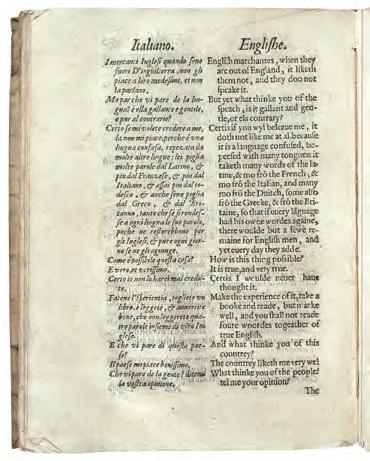 Italiano.
I mercanti Inglesi quando sono
fuori D'inghilterra, non gli
piace a loro medesimi, et non
la parlano.
Ma poi che vi pare de la lin-
gua? è ella gallante e gentile,
o pur al contrario?
Certo se mi volete credere a me,
la non mi piace, perche è una
lingua confusa, repezzata da
molte altre lingue: lei piglia
molte parole dal Latino, &
piu dal Franzese, & piu dal
Italiano, & assai piu dal to-
desco, & anche sone piglia
dal Greco, & dal Bri-
tanno, tanto che se si rendes-
se a ogni lingua le sue parole,
poche ne resterebbono per
gli Inglesi, & pure ogni gior-
no se ne gli agiunge.
Come è possibile questa cosa?
E vero, et verissimo.
Certo io non lo harei mai credu-
to.
Fatene l'sperientia, togliete un
libro, e leggete, & avertite
bene, che non leggerete qua-
tro parole insieme di vero In-
glese.
E che vi pare di questo pae-
se?
Il paese mi piace benissimo.
Che vi pare de la gente? ditemi
la vostra opinione.
Englishe.
English marchantes, when they
are out of England, it liketh
them not, and they doo not
speake it.
But yet what thinke you of the
speach, is it gallant and gen-
tle, or els contrary?
Certis if you wyl beleeue me, it
doth not like me at al. because
it is a language confused, be-
peesed with many tongues: it
taketh many words of the la-
tine, & mo frō the French, &
mo frō the Italian, and many
mo frō the Duitch, some also
frō the Greeke, & frō the Bri-
taine, so that if euery lāguage
had his owne wordes againe,
there woulde but a fewe re-
maine for English men, and
yet euery day they adde.
How is this thing possible?
It is true, and very true.
Certis I woulde neuer haue
thought it.
Make the experience of it, take a
booke and reade, but marke
well, and you shall not reade
foure woordes togeather of
true English.
And what thinke you of this
countrey?
The countrey liketh me very wel
What thinke you of the people?
tel me your opinion?
The